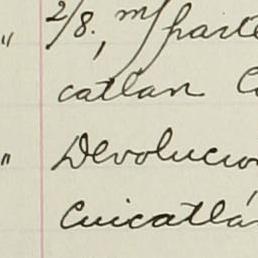 " 2/8, m/ parte
catlan C
" Devolucio
Cuicatlá